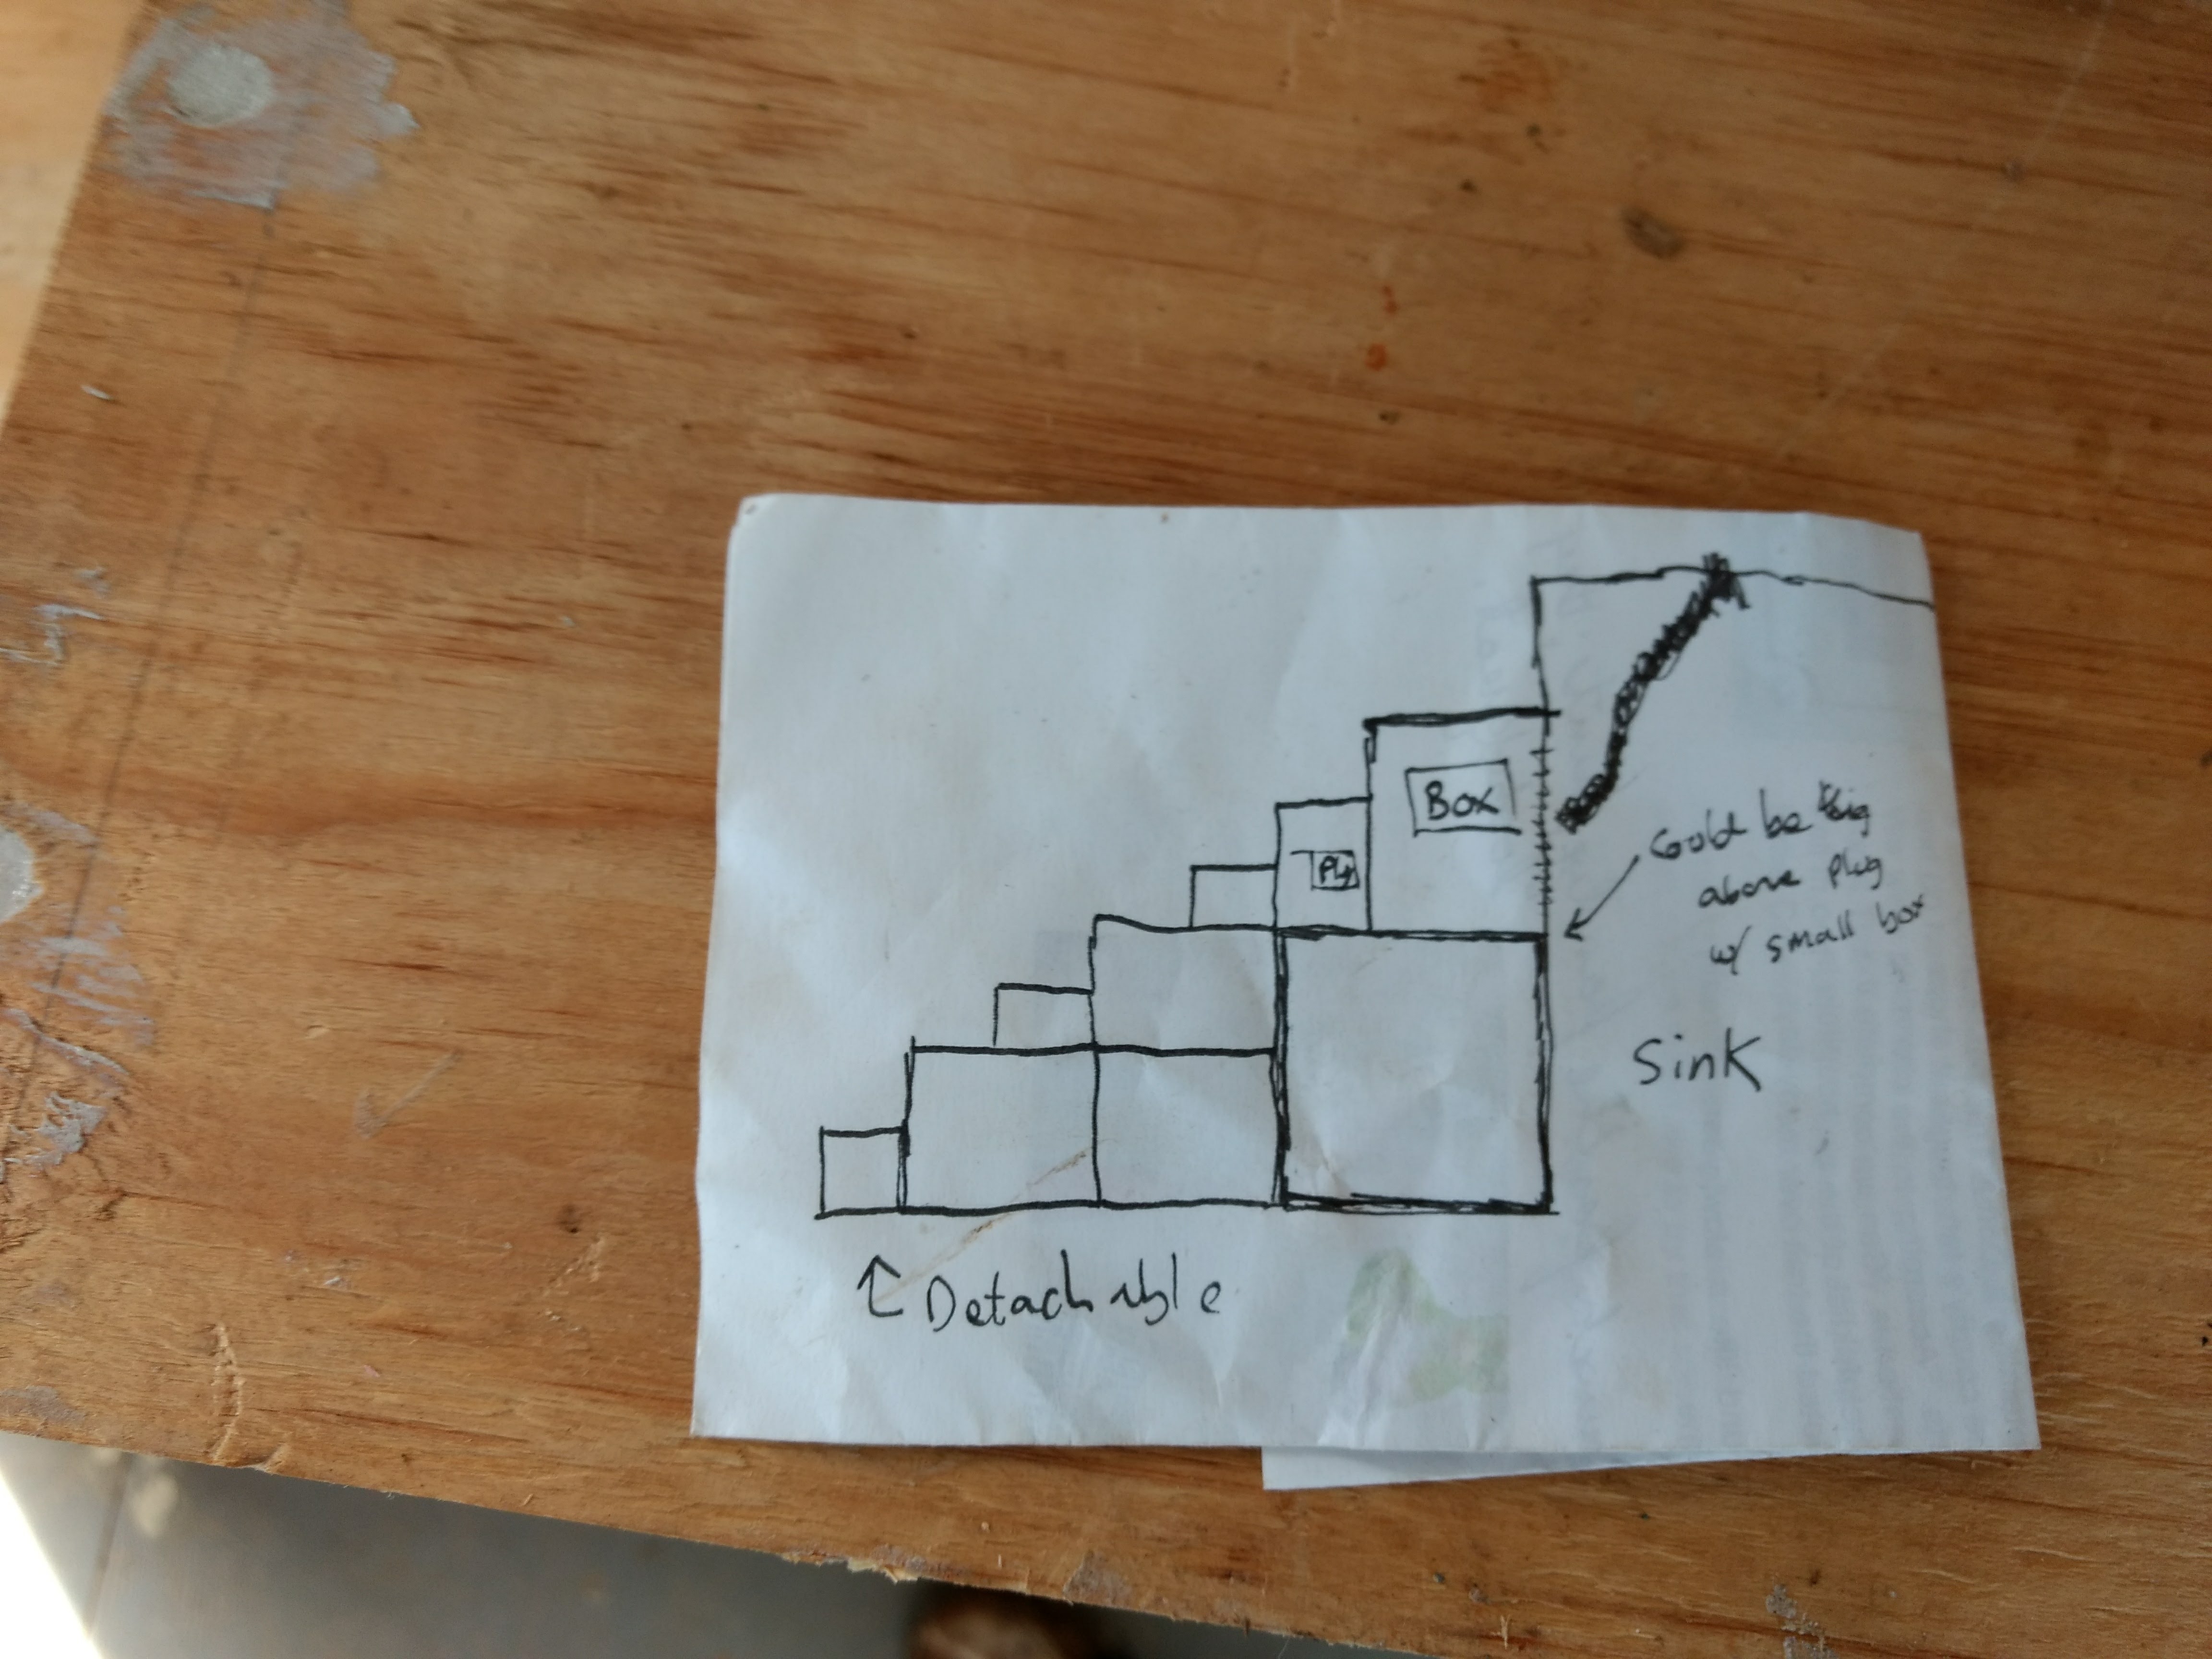 Box
Plg
Could be big
above plug
w/ small box
Sink
Detachable